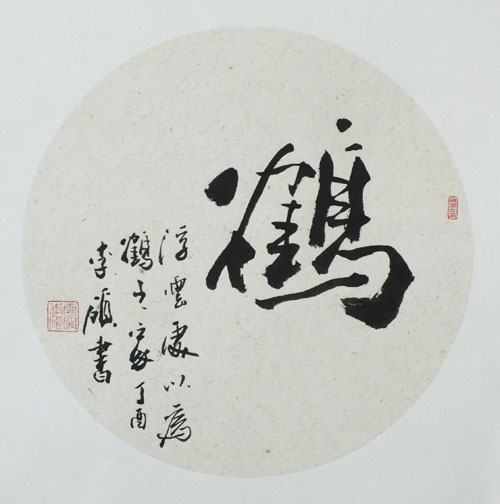 鶴
浮雲處以為
鶴之家丁酉
李碩書